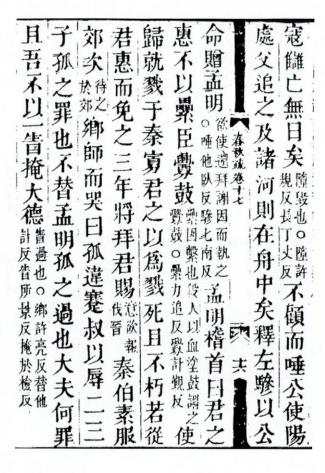 寇讎亡無日矣墮毀也○墮許規反長丁丈反不顧而唾公使陽
處父追之及諸河則在舟中矣釋左驂以公
春秋疏卷十七
十六
命贈孟明欲使還拜謝因而執之○唾他臥反驂七南反孟明稽首曰君之
惠不以纍臣釁鼓纍囚繫也殺人以血塗鼓謂之釁鼓○纍力追反釁許覲反使
歸就戮于秦寡君之以爲戮死且不朽若從
君惠而免之三年將拜君賜意欲報伐晉秦伯素服
郊次待之於郊鄉師而哭曰孤違蹇叔以辱二三
子孤之罪也不替孟明孤之過也大夫何罪
且吾不以一眚掩大德眚過也○鄉許亮反替他計反眚所景反掩於檢反